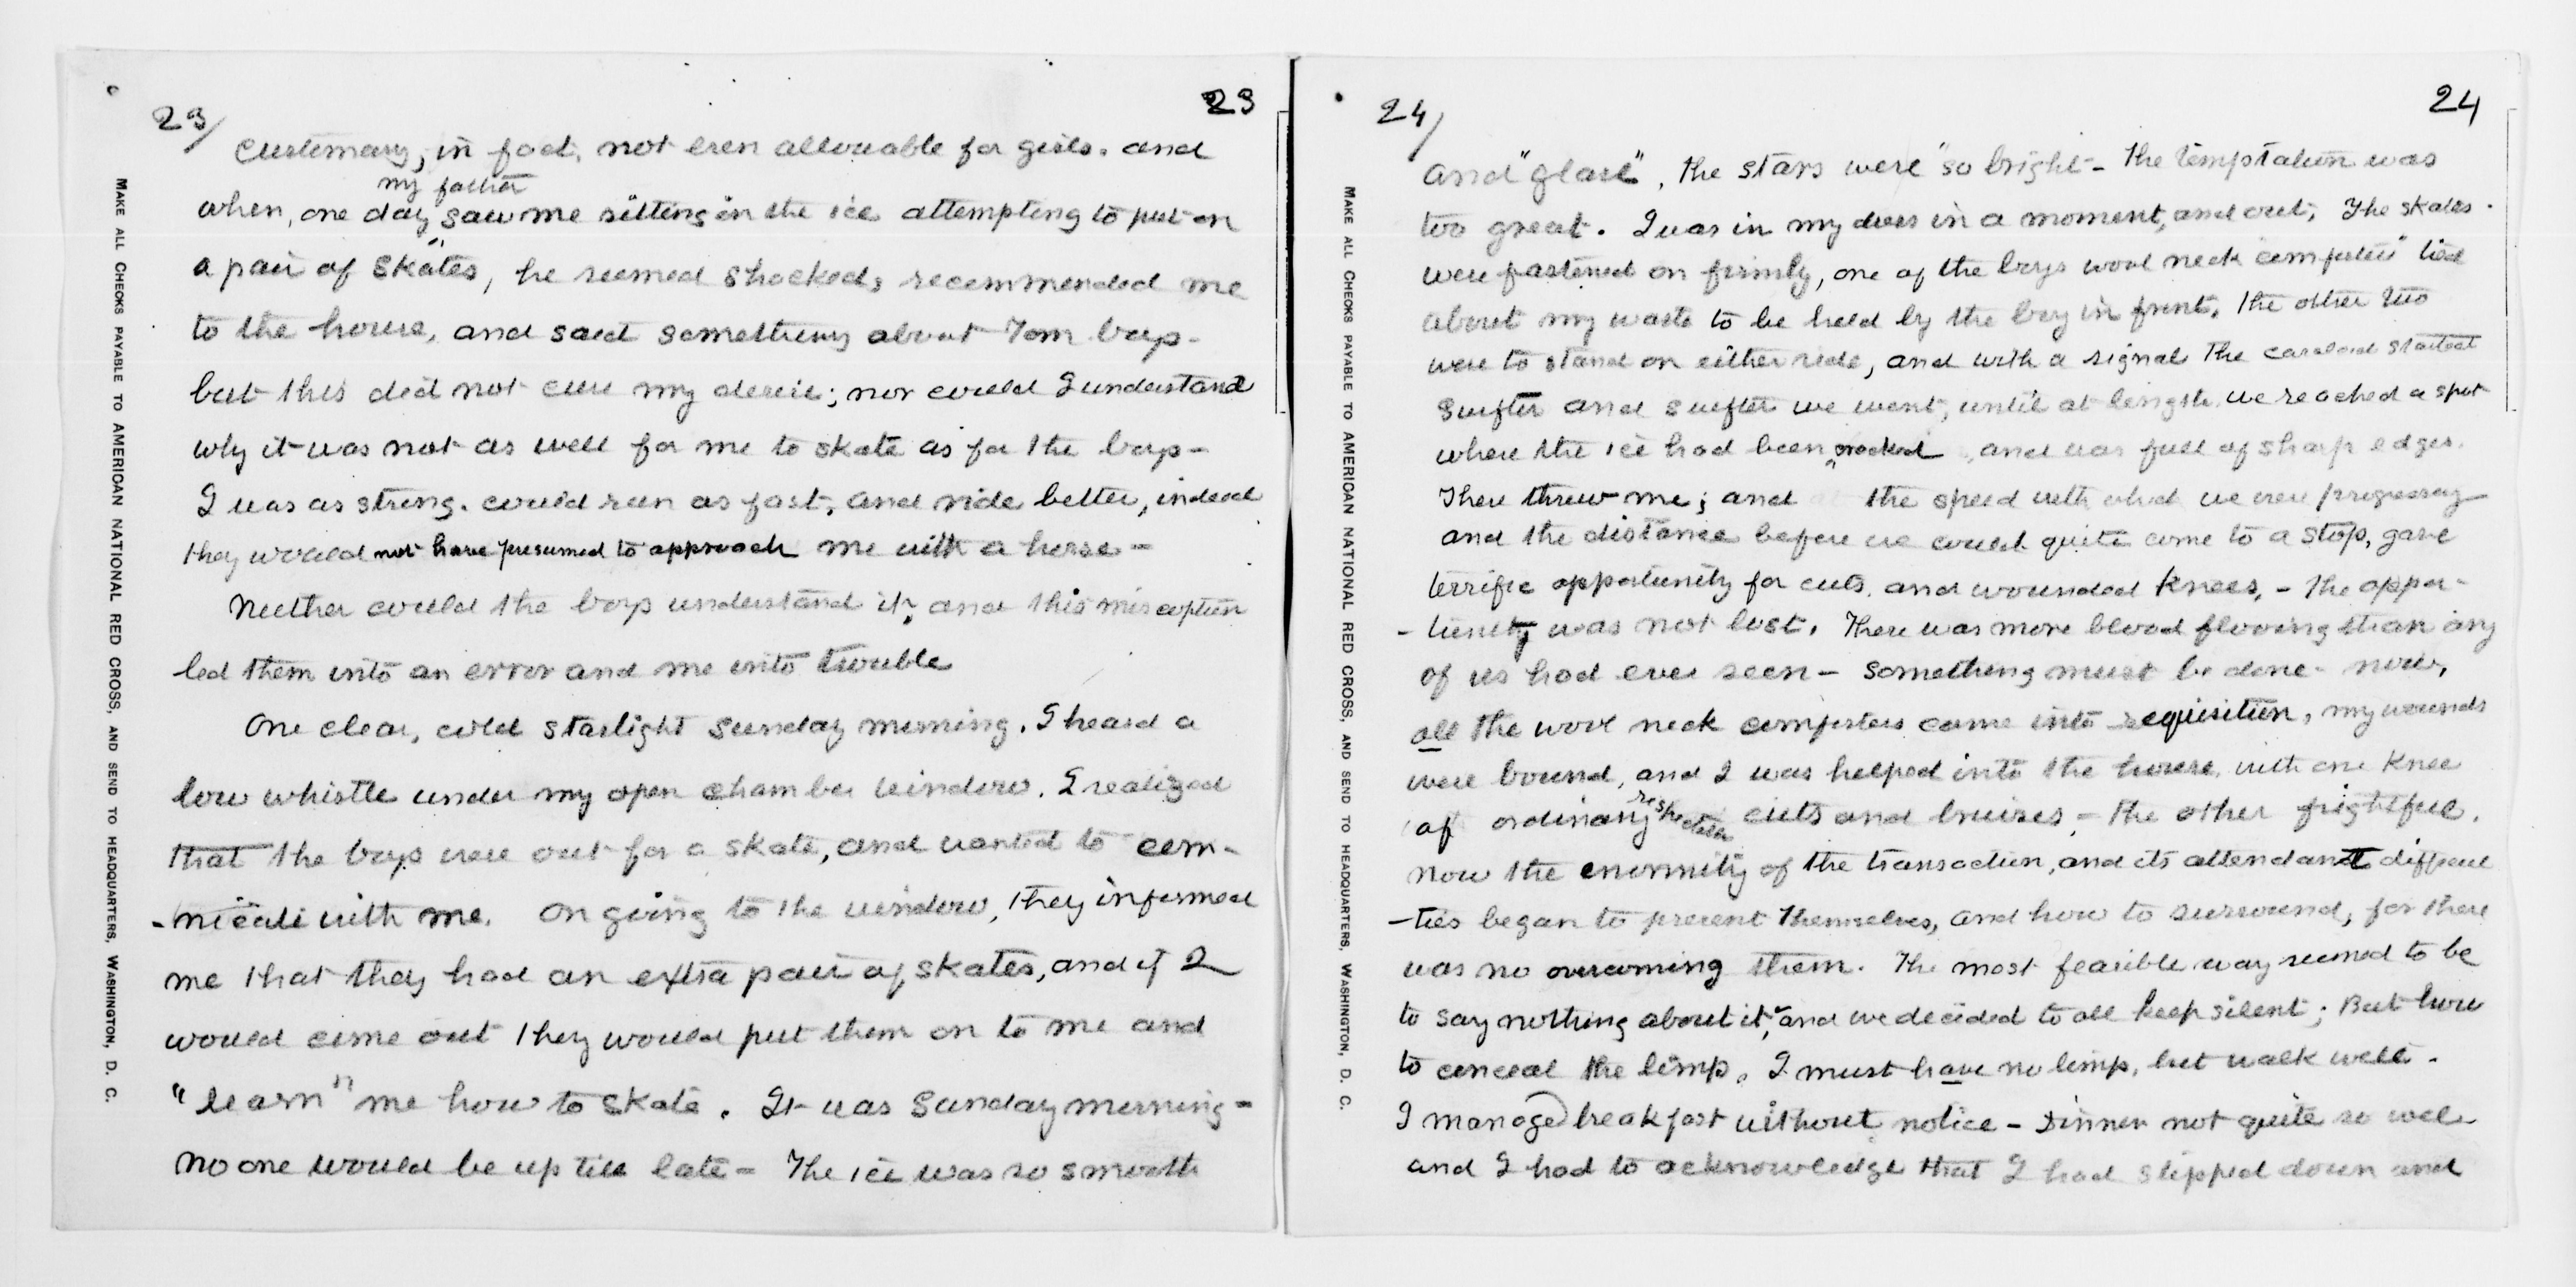 23/
23
customary, in fact, not even allowable for girls. and
my father
when, one day saw me sitting on the ice attempting to put on
a pair of skates, he seemed shocked, recommended me
to the house, and said something about Tom boys -
but this did not cure my desire; nor could I understand
why it was not as well for me to skate as for the boys -
I was as strong. could run as fast, and ride better, indeed
they would not have presumed to approach me with a horse -
Neither could the boys understand it, and this misception
led them into an error and me into trouble
One clear, cold starlight Sunday morning. I heard a
low whistle under my open chamber window. I realized
that the boys were out for a skate, and wanted to com-
-nicate with me. On going to the window, they informed
me that they had an extra pair of skates, and if I
would come out they would put them on to me and
"learn" me how to skate. It was Sunday morning -
no one would be up till late - The ice was so smooth
MAKE ALL CHECKS PAYABLE TO AMERICAN NATIONAL RED CROSS, AND SEND TO HEADQUARTERS, WASHINGTON, D. C.
24/
24
and "glare", the stars were so bright - the temptation was
too great. I was in my dress in a moment, and out, The skates
were fastened on firmly, one of the boys wool neck comforters tied
about my waste to be held by the boy in front, the other two
were to stand on either side, and with a signal the started
swifter and swifter we went, until at length we reached a spot
where the ice had been cracked, and was full of sharp edges.
These threw me; and the speed with which we were progressing
and the distance before we could quite come to a stop, gave
terrific opportunity for cuts, and wounded knees, - the oppor-
-tunity was not lost. There was more blood flowing than any
of us had ever seen - Something must be done - now,
all the wool neck comforters came into requisition, my wounds
were bound, and I was helped into the house, with one knee
of ordinary cuts and bruises - the other frightful.
now the enormity of the transaction, and its attendant difficul
-ties began to present themselves, and how to surround, for there
was no overcoming them. The most feasible way seemed to be
to say nothing about it, and we decided to all keep silent; But how
to conceal the limp. I must have no limp, but walk well.
I manage breakfast without notice - Dinner not quite so well
and I had to acknowledge that I had slipped down and
MAKE ALL CHECKS PAYABLE TO AMERICAN NATIONAL RED CROSS, AND SEND TO HEADQUARTERS, WASHINGTON, D. C.